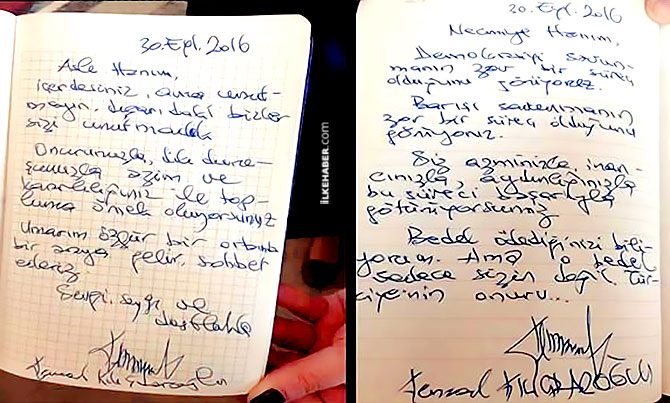 30. Eyl. 2016
Aslı Hanım,
içerdesiniz, ama unut-
mayın, dışarıdaki bizler
sizi unutmadık
Onurunuzla, dik duru-
şunuzla azim ve
kararlılığınız ile top-
luma örnek oluyorsunuz
Umarım özgür bir ortamda
bir araya gelir, sohbet
ederiz.
Sevgi, saygı ve
dostlukla
Kemal Kılıçdaroğlu
İLKEHABER.COM
30. Eyl. 2016
Necmiye Hanım,
Demokrasiyi savun-
manın zor bir süreç
olduğunu görüyoruz.
Barışı savunmanın
zor bir süreç olduğunu
görüyoruz.
Siz azminizle, inan-
cınızla, aydınlığınızla
bu süreci başarıyla
götürüyorsunuz
Bedel ödediğinizi bili-
yorum. Ama o bedel
sadece sizin değil, Tür-
kiye'nin onuru...
Kemal KILIÇDAROĞLU